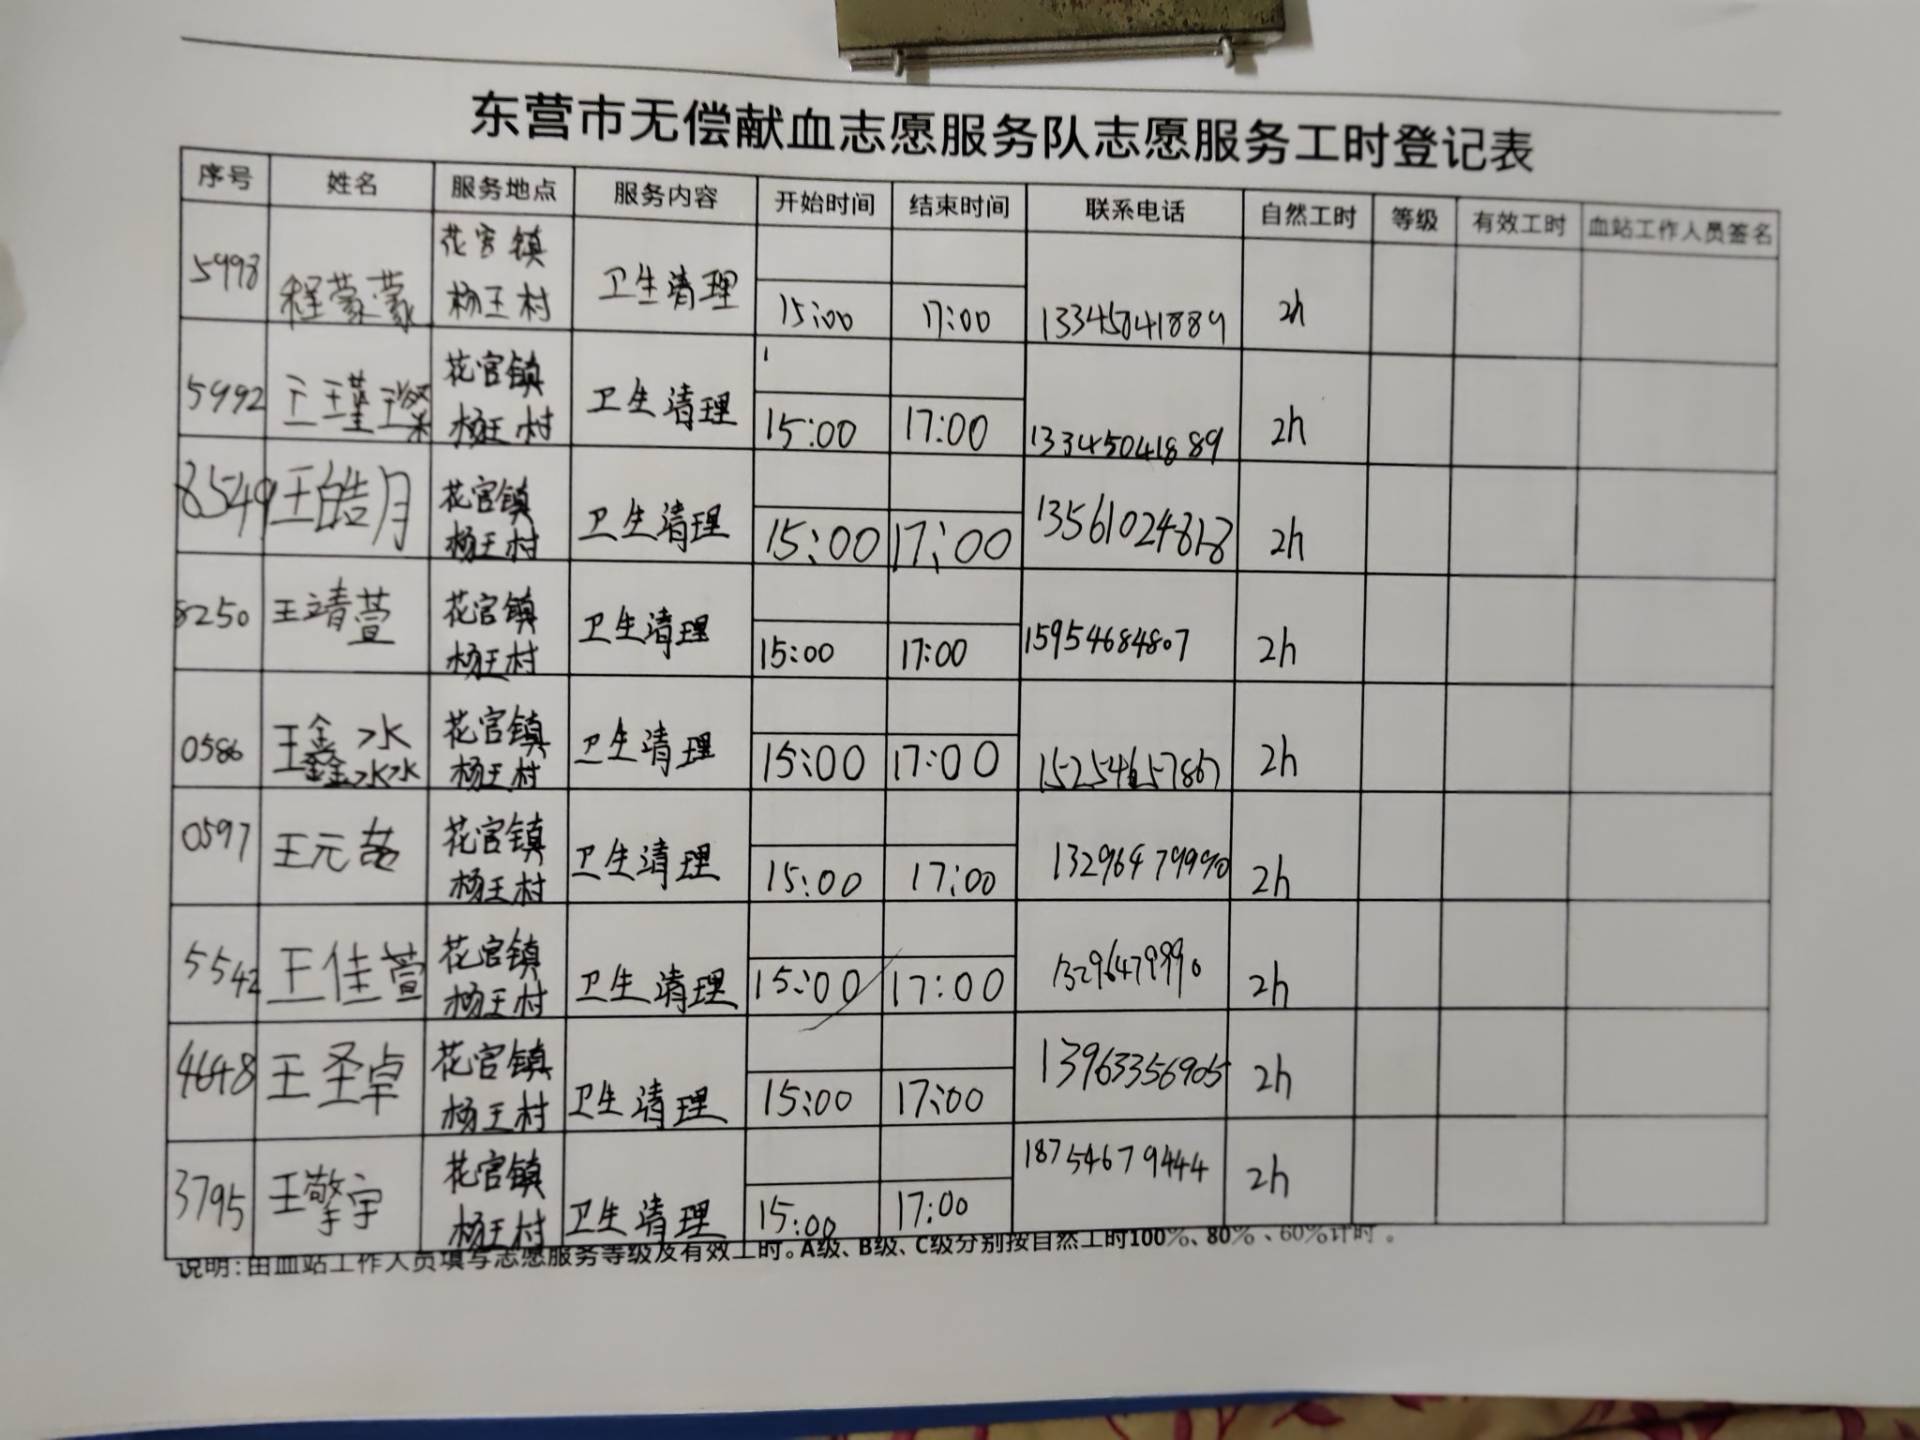 东营市无偿献血志愿服务队志愿服务工时登记表
序号 姓名 服务地点 服务内容 开始时间 结束时间 联系电话 自然工时 等级 有效工时 血站工作人员签名
5998 程蒙蒙 花官镇 杨王村 卫生清理 15:00 17:00 13345041889 2h
5992 王瑾璨 花官镇 杨王村 卫生清理 15:00 17:00 13345041889 2h
8549 王皓月 花官镇 杨王村 卫生清理 15:00 17:00 13561024818 2h
8250 王靖萱 花官镇 杨王村 卫生清理 15:00 17:00 15954684807 2h
0586 王鑫淼 花官镇 杨王村 卫生清理 15:00 17:00 15254657867 2h
0597 王元 花官镇 杨王村 卫生清理 15:00 17:00 13296479990 2h
5542 王佳萱 花官镇 杨王村 卫生清理 15:00 17:00 13296479990 2h
4648 王圣卓 花官镇 杨王村 卫生清理 15:00 17:00 13963356905 2h
3795 王擎宇 花官镇 杨王村 卫生清理 15:00 17:00 18754679444 2h
说明:由血站工作人员填写志愿服务等级及有效工时。A级、B级、C级分别按自然工时100%、80%、60%计时。